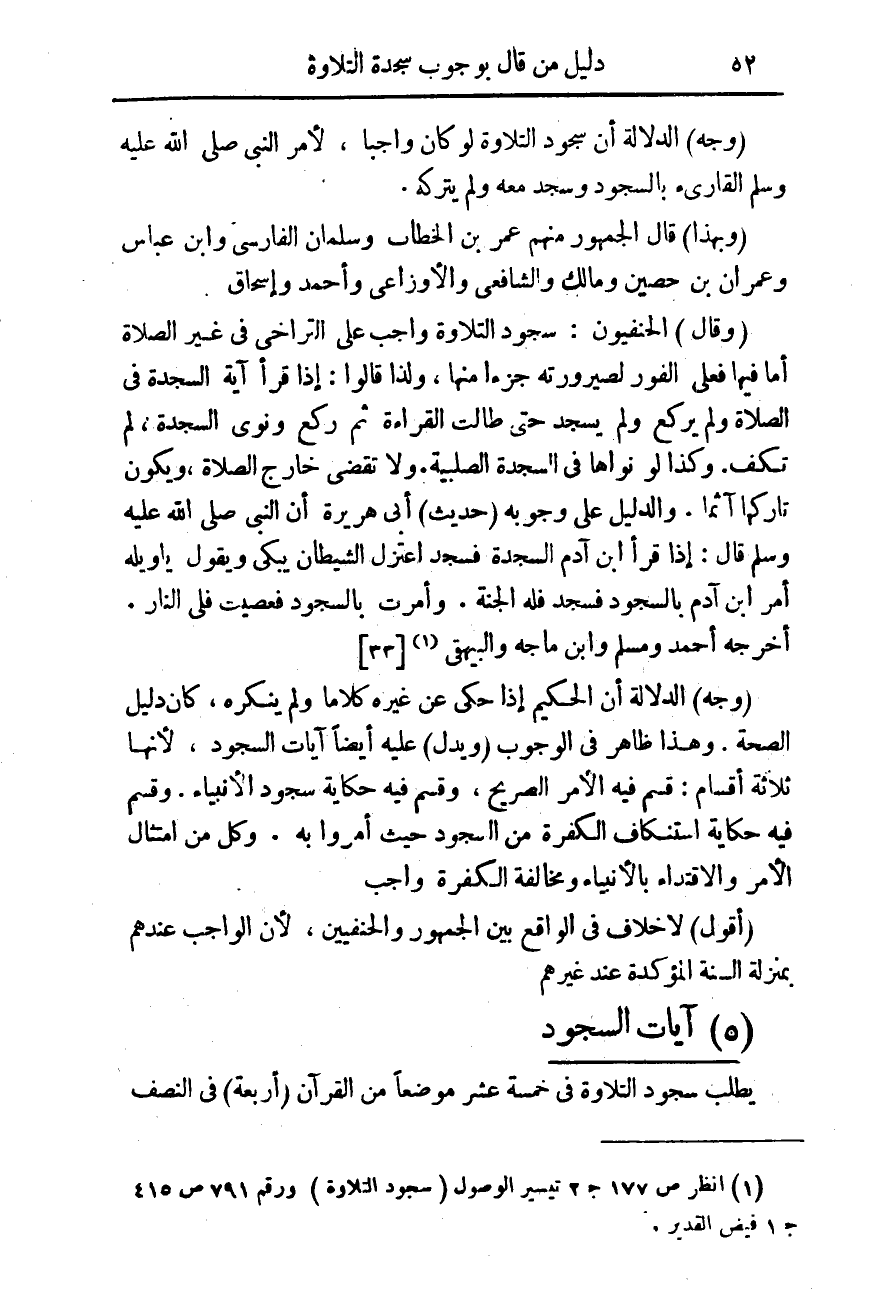 ٥٢ دليل من قال بوجوب سجدة التلاوة
(وجه) الدلالة أن سجود التلاوة لو كان واجبا ، لأمر النبى صلى الله عليه
وسلم القارىء بالسجود وسجد معه ولم يتركه .
(وبهذا) قال الجمهور منهم عمر بن الخطاب وسلمان الفارسى وابن عباس
وعمران بن حصين ومالك والشافعى والأوزاعى وأحمد وإسحاق .
(وقال) الحنفيون : سجود التلاوة واجب على التراخى فى غير الصلاة
أما فيها فعلى الفور لصيرورته جزءا منها ، ولذا قالوا : إذا قرأ آية السجدة فى
الصلاة ولم يركع ولم يسجد حتى طالت القراءة ثم ركع ونوى السجدة ، لم
تكف . وكذا لو نواها فى السجدة الصلبية . ولا تقضى خارج الصلاة ، ويكون
تاركها آثما . والدليل على وجوبه (حديث) أبى هريرة أن النبى صلى الله عليه
وسلم قال : إذا قرأ ابن آدم السجدة فسجد اعتزل الشيطان يبكى ويقول ياويله
أمر ابن آدم بالسجود فسجد فله الجنة . وأمرت بالسجود فعصيت فلى النار .
أخرجه أحمد ومسلم وابن ماجه والبيهقى (١) [٣٣]
(وجه) الدلالة أن الحكيم إذا حكى عن غيره كلاما ولم ينكره ، كان دليل
الصحة . وهذا ظاهر فى الوجوب (ويدل) عليه أيضاً آيات السجود ، لأنها
ثلاثة أقسام : قسم فيه الأمر الصريح ، وقسم فيه حكاية سجود الأنبياء . وقسم
فيه حكاية استنكاف الكفرة من السجود حيث أمروا به . وكل من امتثال
الأمر والاقتداء بالأنبياء ومخالفة الكفرة واجب
(أقول) لاخلاف فى الواقع بين الجمهور والحنفيين ، لأن الواجب عندهم
بمنزلة السنة المؤكدة عند غيرهم
(٥) آيات السجود
يطلب سجود التلاوة فى خمسة عشر موضعاً من القرآن (أربعة) فى النصف
(١) انظر ص ١٧٧ ج ٢ تيسير الوصول ( سجود التلاوة ) ورقم ٧٩١ ص ٤١٥
ج ١ فيض القدير .